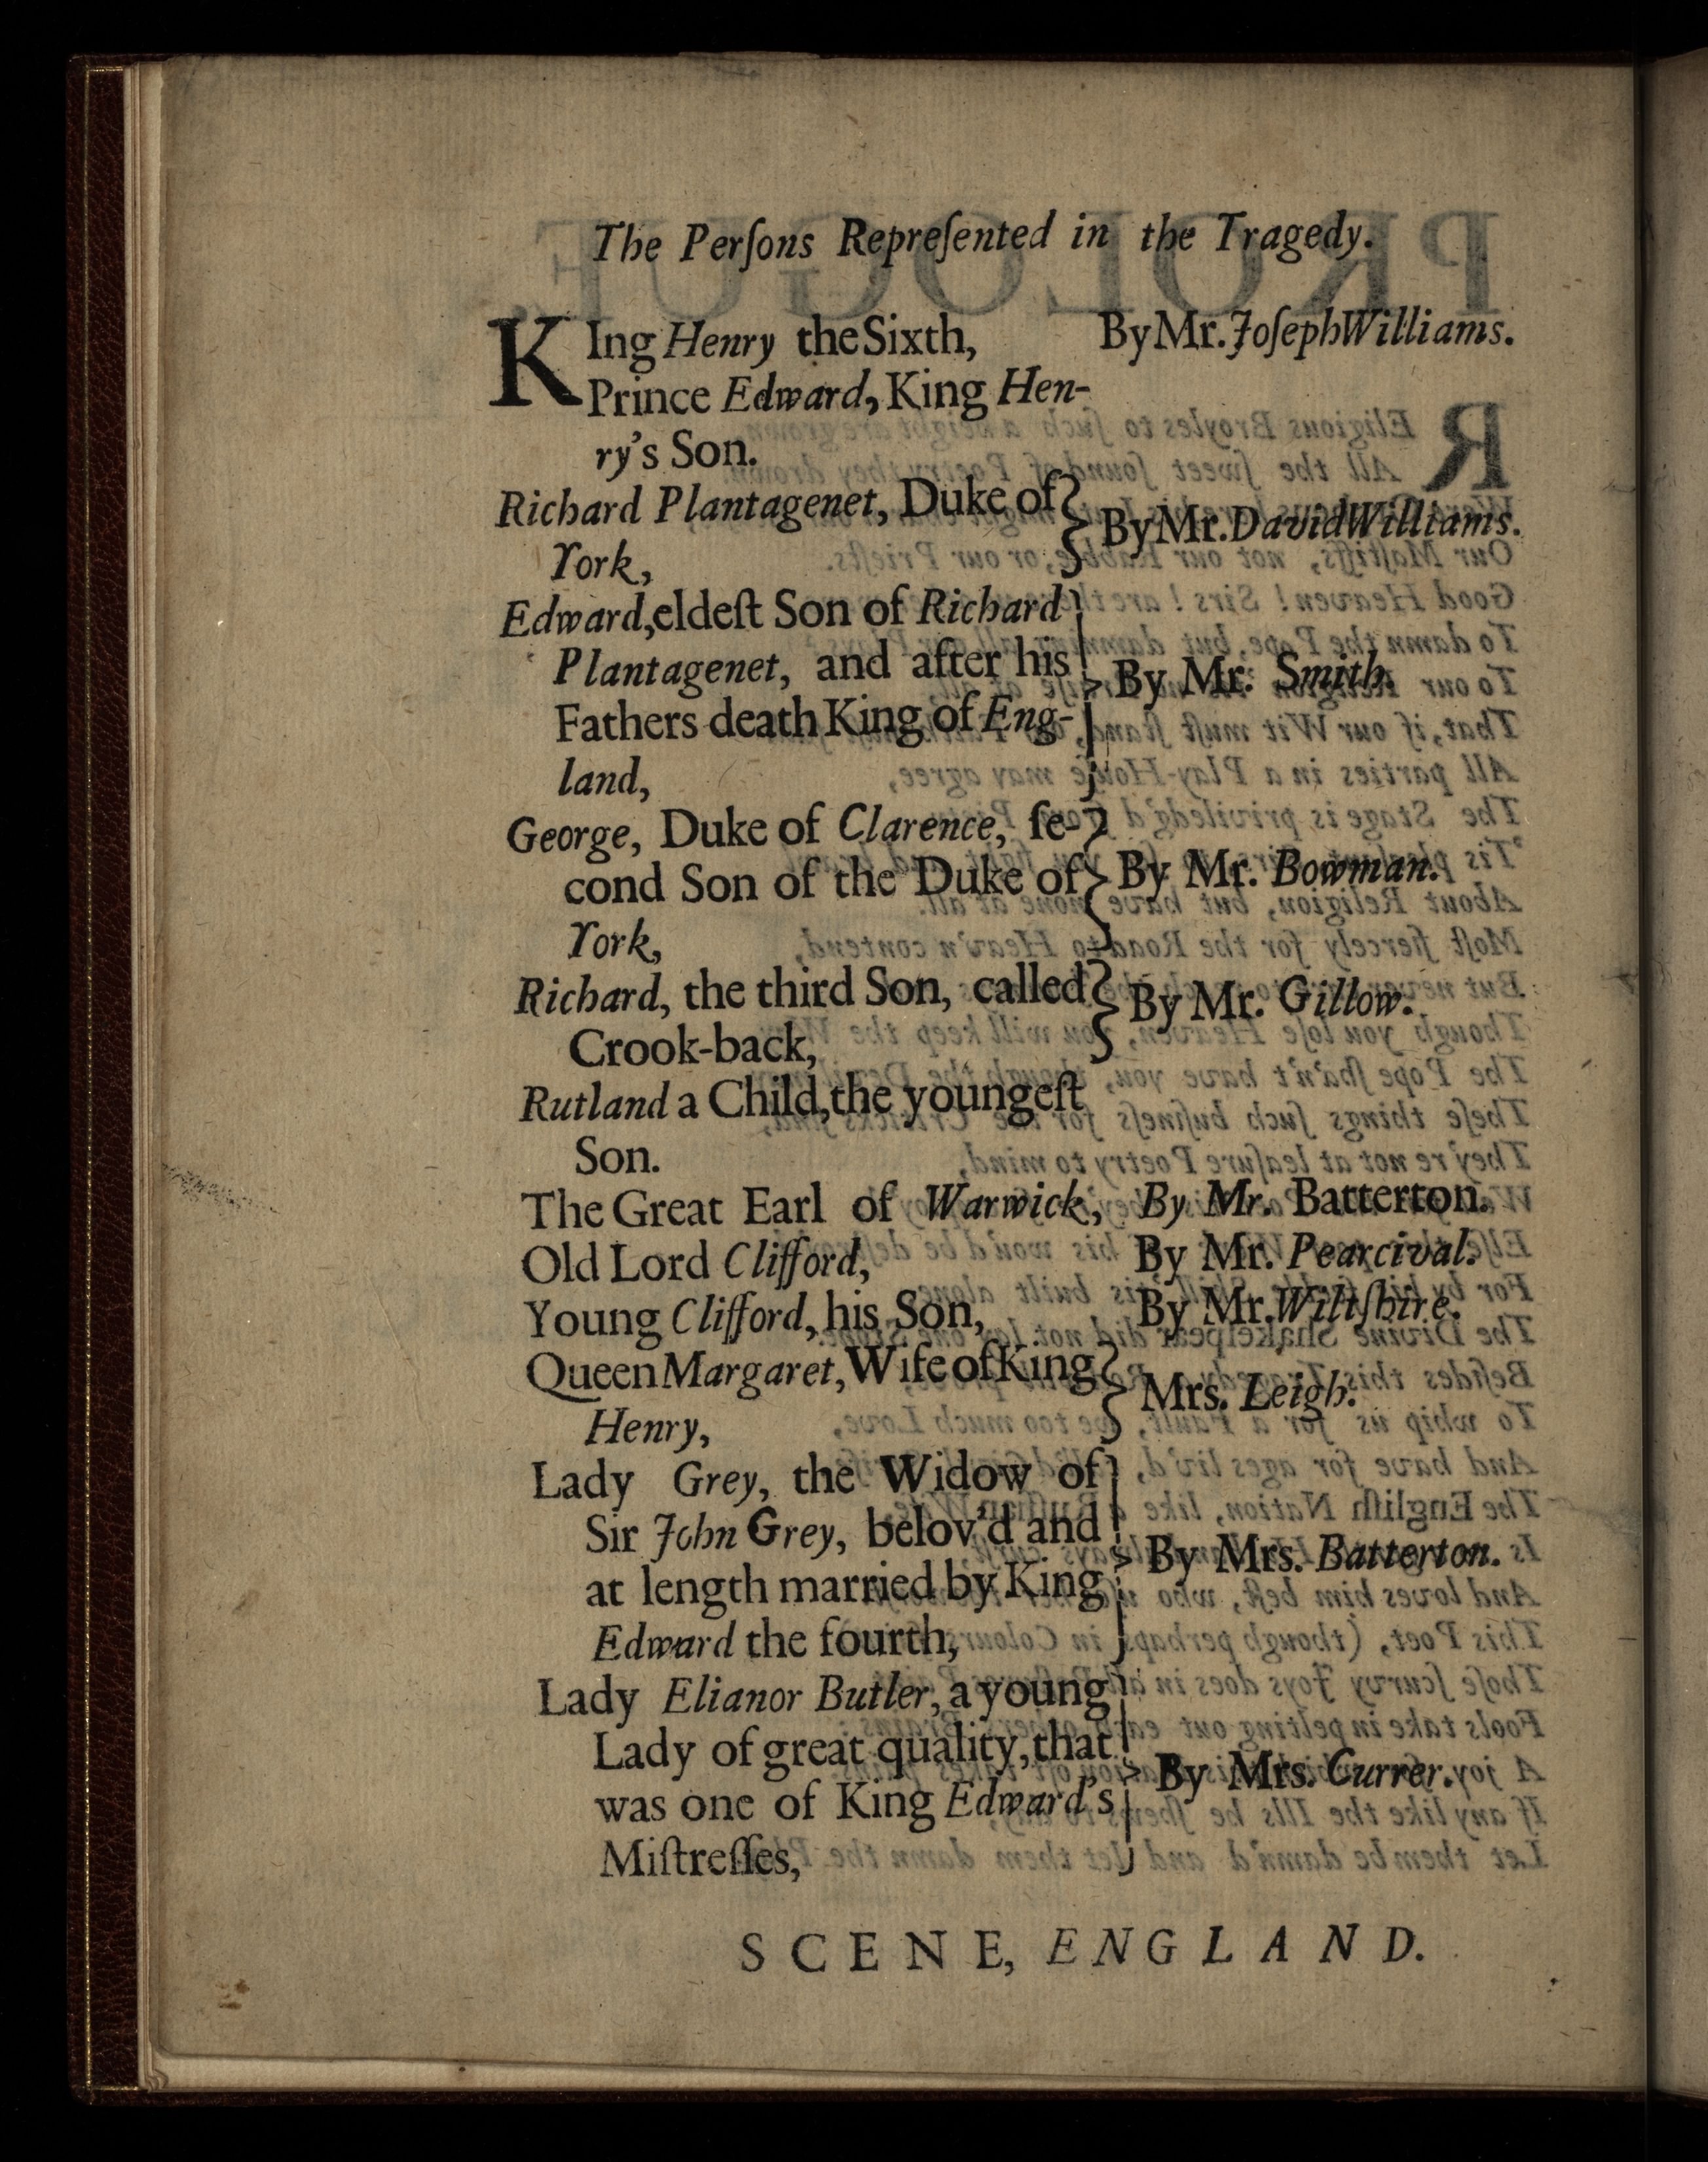 The Perſons Repreſented in the Tragedy.
KIng Henry the Sixth, By Mr. Joſeph Williams.
Prince Edward, King Hen-
ry's Son.
Richard Plantagenet, Duke of
York, By Mr. David Williams.
Edward, eldeſt Son of Richard
Plantagenet, and after his
Fathers death King of Eng-
land, By Mr. Smith.
George, Duke of Clarence, ſe-
cond Son of the Duke of
York, By Mr. Bowman.
Richard, the third Son, called
Crook-back, By Mr. Gillow.
Rutland a Child, the youngeſt
Son.
The Great Earl of Warwick, By Mr. Batterton.
Old Lord Clifford, By Mr. Pearcival.
Young Clifford, his Son, By Mr. Wiltſhire.
Queen Margaret, Wife of King
Henry, Mrs. Leigh.
Lady Grey, the Widow of
Sir John Grey, belov'd and
at length married by King
Edward the fourth, By Mrs. Batterton.
Lady Elianor Butler, a young
Lady of great quality, that
was one of King Edward's
Miſtreſſes, By Mrs. Currer.
SCENE, ENGLAND.